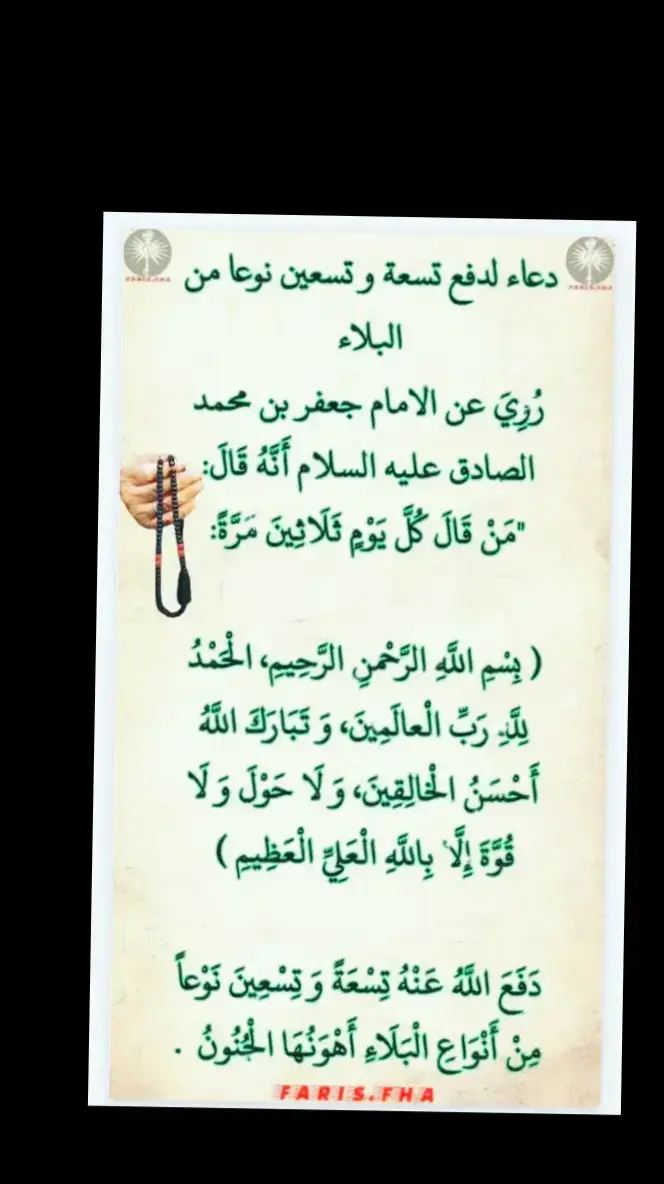 دعاء لدفع تسعة و تسعين نوعا من
البلاء
رُوِيَ عن الامام جعفر بن محمد
الصادق عليه السلام أَنَّهُ قَالَ:
"مَنْ قَالَ كُلَّ يَوْمٍ ثَلَاثِينَ مَرَّةً:
( بِسْمِ اللَّهِ الرَّحْمنِ الرَّحِيمِ، الْحَمْدُ
لِلَّهِ رَبِّ الْعالَمِينَ، وَ تَبَارَكَ اللَّهُ
أَحْسَنُ الْخالِقِينَ، وَ لَا حَوْلَ وَ لَا
قُوَّةَ إِلَّا بِاللَّهِ الْعَلِيِّ الْعَظِيمِ )
دَفَعَ اللَّهُ عَنْهُ تِسْعَةً وَ تِسْعِينَ نَوْعاً
مِنْ أَنْوَاعِ الْبَلَاءِ أَهْوَنُهَا الْجُنُونُ .
FARIS.FHA
FARIS.FHA
FARIS.FHA